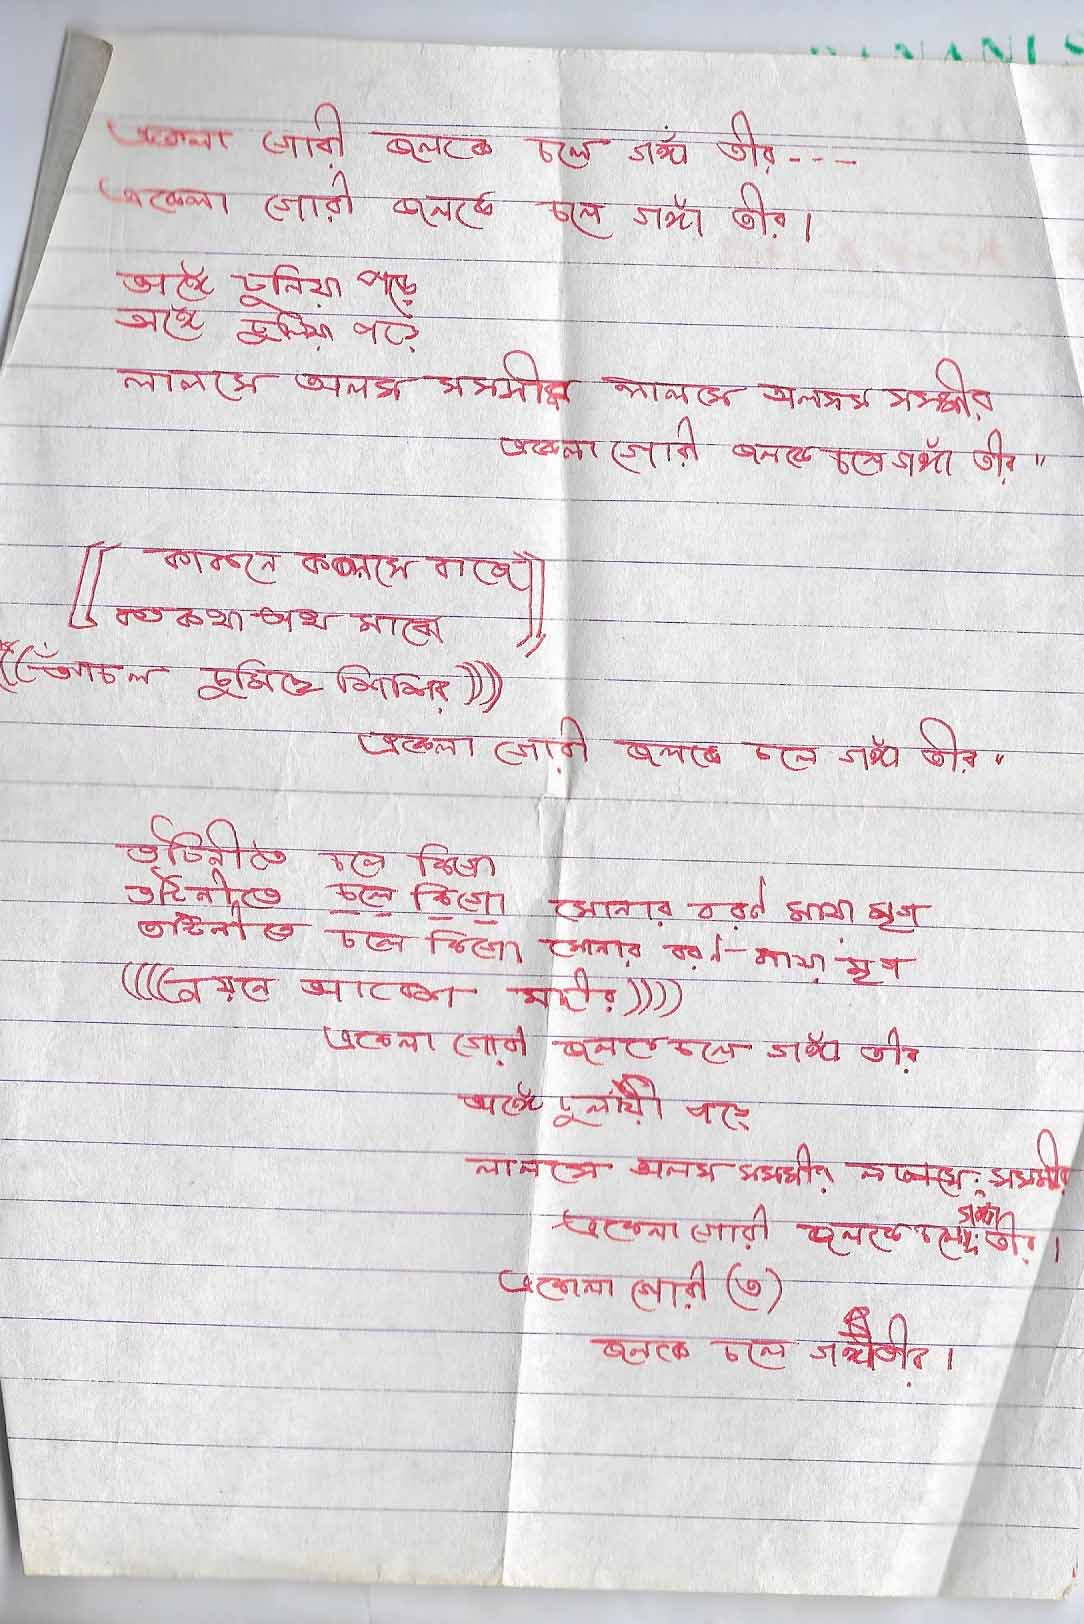 একেলা গোরী জলকে চলে গঙ্গা তীর---
একেলা গোরী জলকে চলে গঙ্গা তীর।
অঙ্গে ঢুলিয়া পড়ে
অঙ্গে ঢুলিয়া পড়ে
লালসে অলস সমমীর লালসে অলসস সমমীর
একেলা গোরী জলকে চলে গঙ্গাঁ তীর"
কাকনে কলসে বাজে
কত কথা পথ মাঝে
আঁচল চুমিছে শিশির
একেলা গোরী জলকে চলে গঙ্গা তীর"
তটিনীতে চলে কিগো
তটিনীতে চলে কিগো সোনার বরণ মায়া মৃগ
তটিনীতে চলে কিগো সোনার বরণ-মায়া মৃগ
((((নয়নে আবেশ মদীর))))
একেলা গোরী জলকে চলে গঙ্গা তীর
অঙ্গে ঢুলায়ী পড়ে
লালসে অলস সমমীর লালসে সমমীর
একেলা গোরী জলকে চলে গঙ্গা তীর।
একেলা গোরী (৩)
জলকে চলে গঙ্গা তীর।